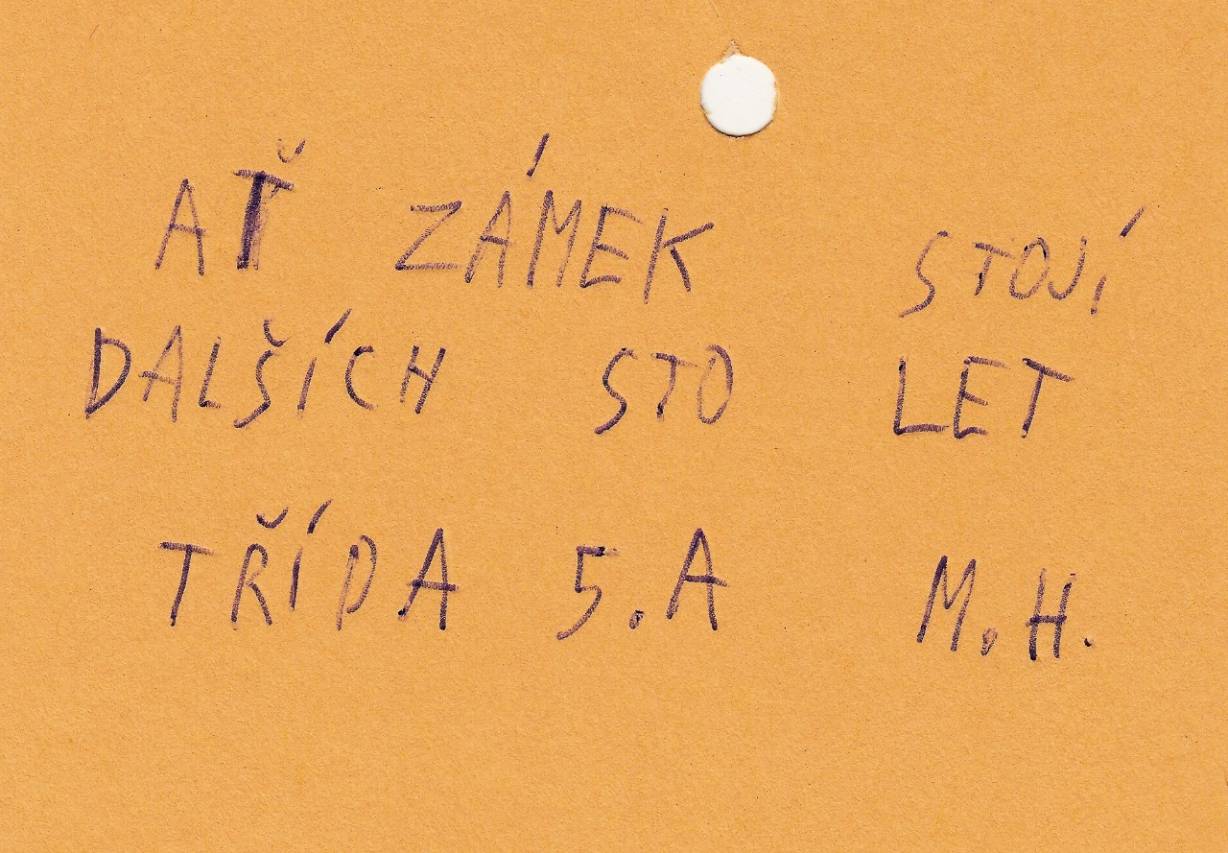 AŤ ZÁMEK STOJÍ
DALŠÍCH STO LET
TŘÍDA 5.A M.H.